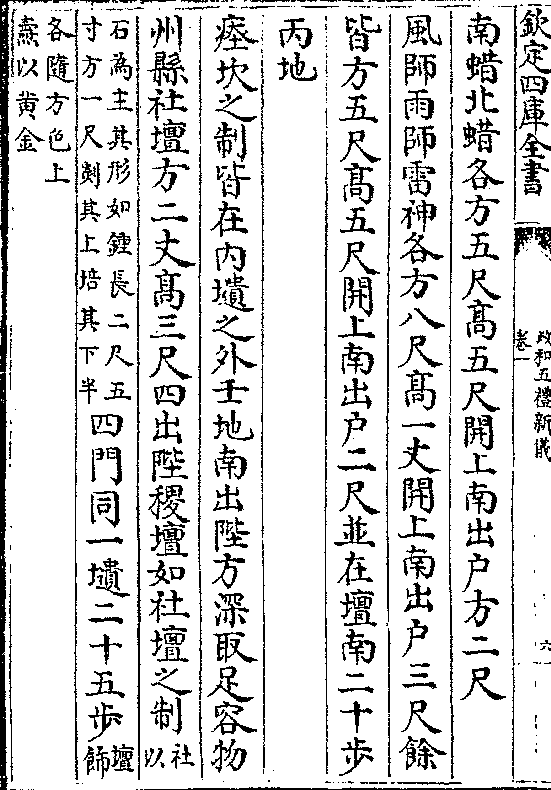 欽定四庫全書
政和五禮新儀
卷一
六
南蜡北蜡各方五尺高五尺開上南出户方二尺
風師雨師雷神各方八尺高一丈開上南出户三尺餘
皆方五尺高五尺開上南出户二尺並在壇南二十步
丙地
瘞坎之制皆在内壝之外壬地南出陛方深取足容物
州縣社壇方二丈高三尺四出陛稷壇如社壇之制社以
石為主其形如鍾長二尺五寸方一尺剡其上培其下半四門同一壝二十五步壇飾
各隨方色上燾以黄金